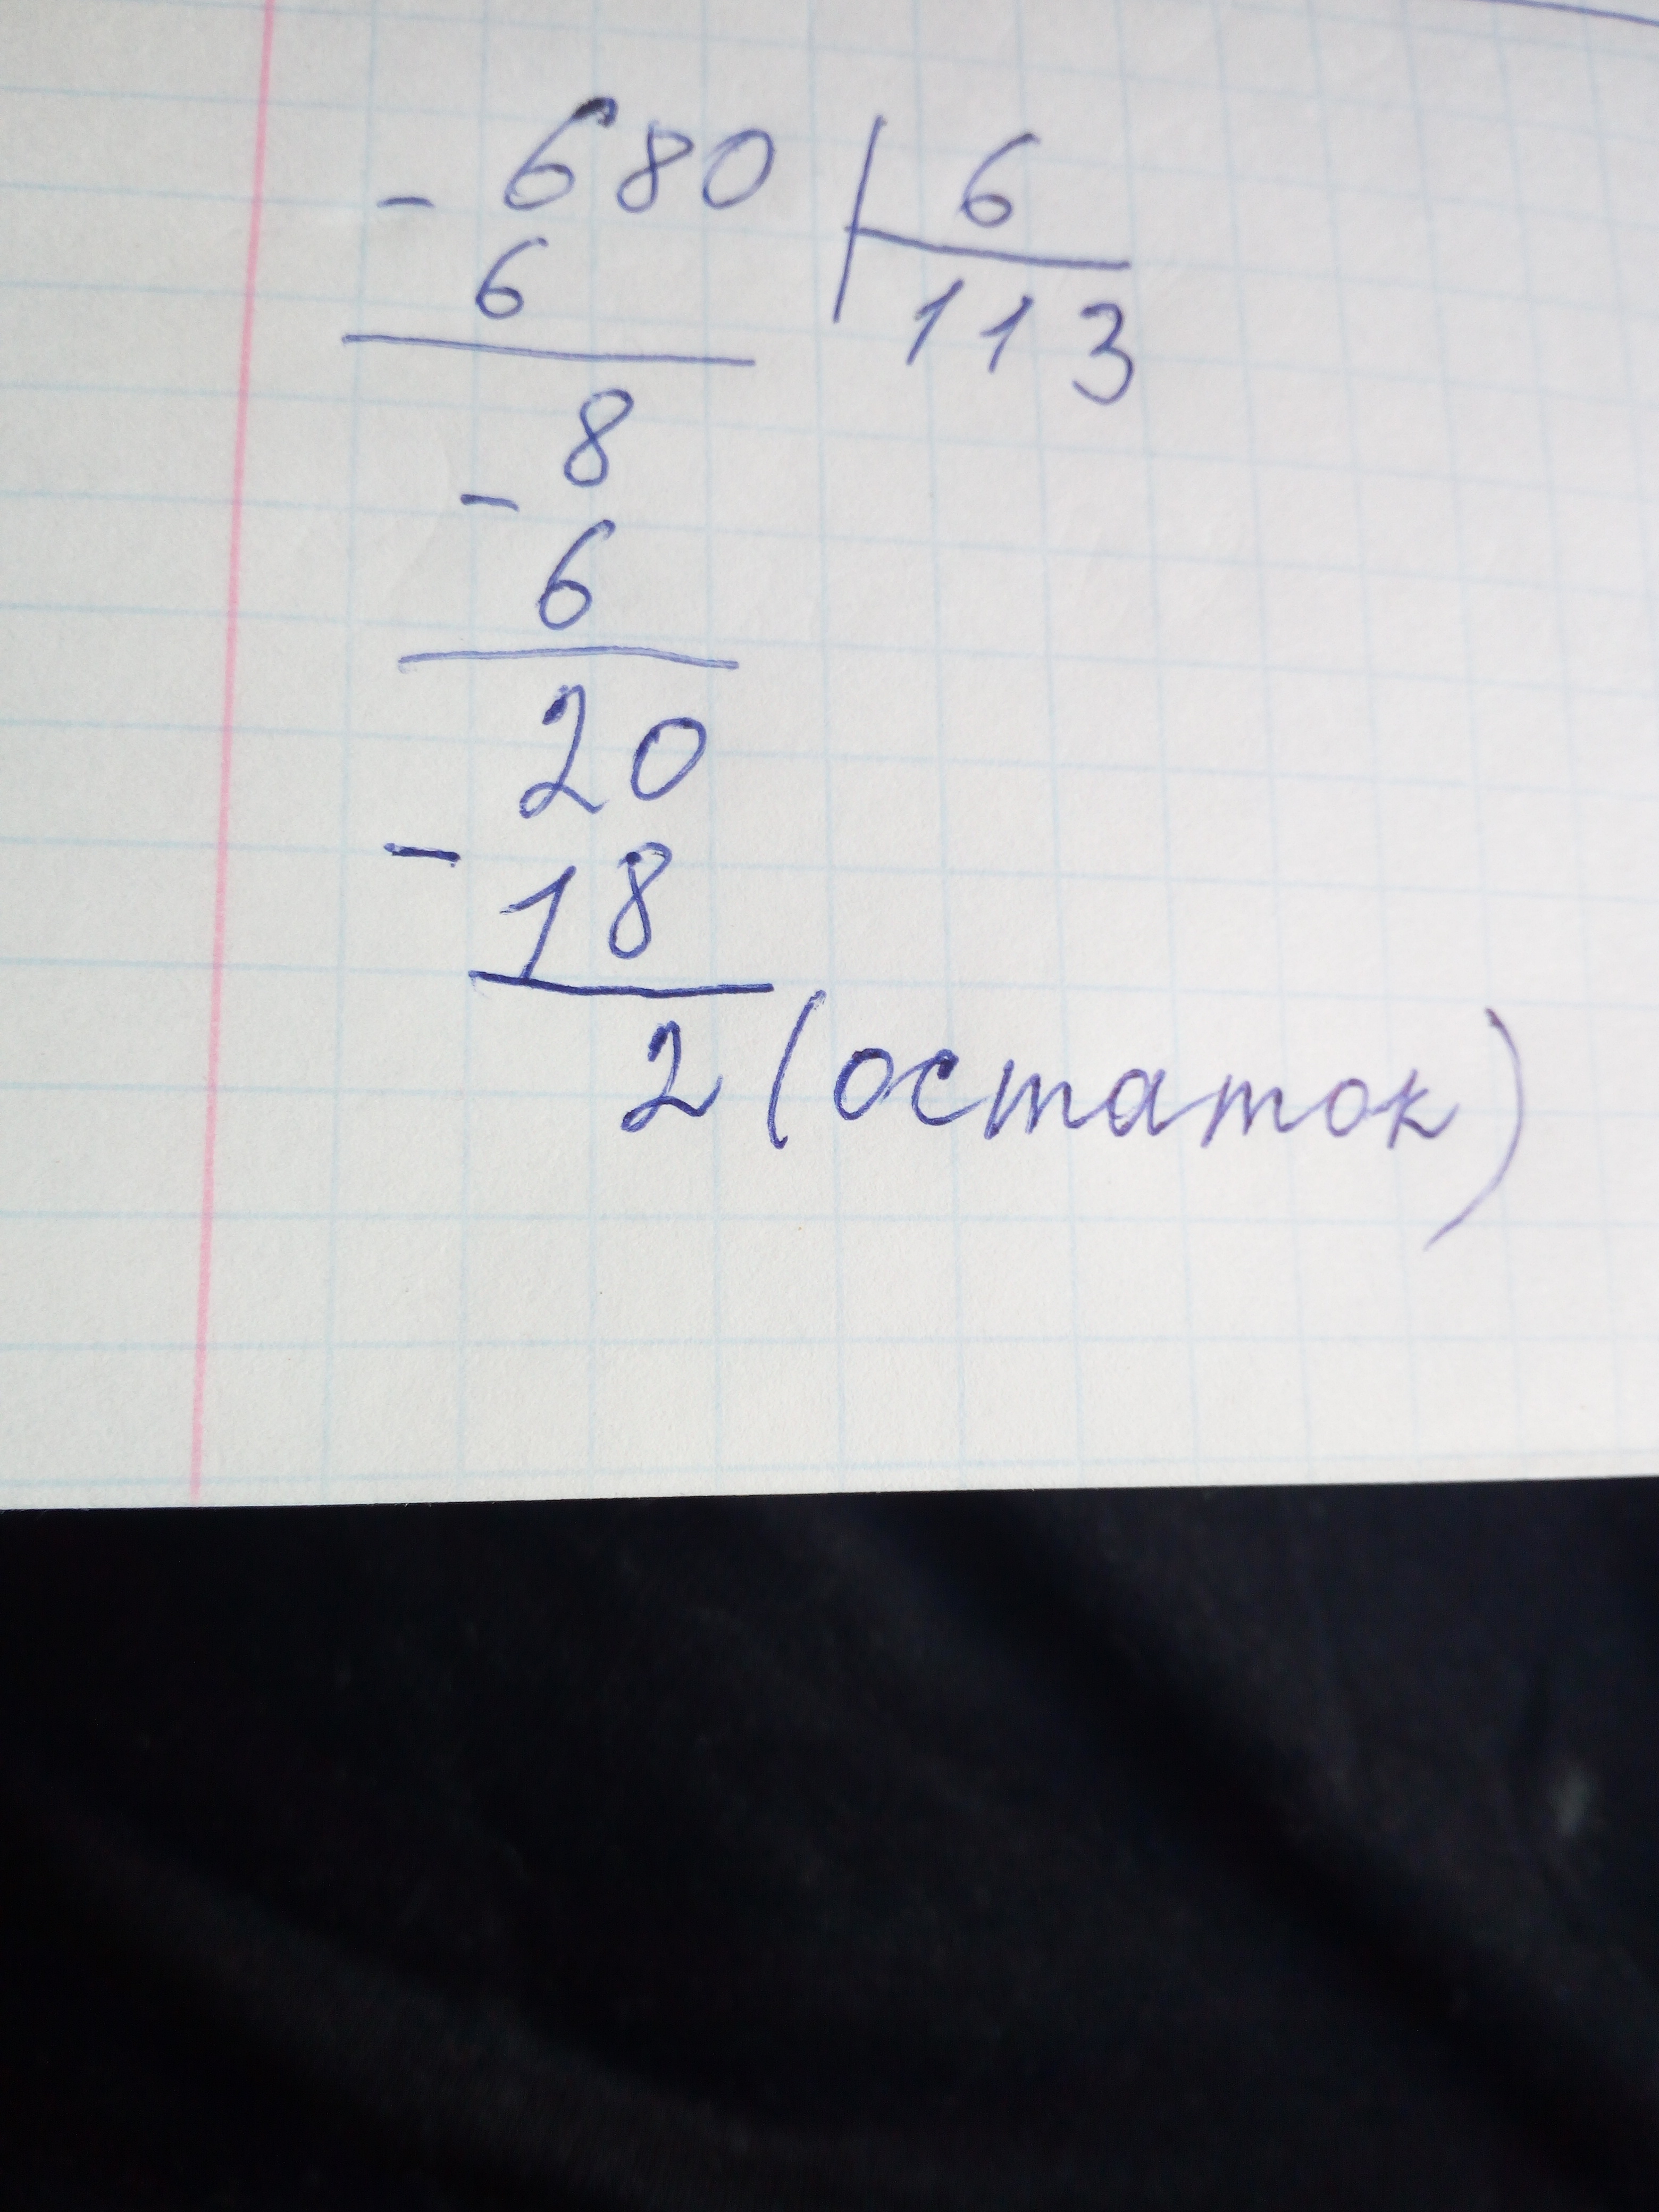 - 680 | 6
6 113
8
-
6
20
-
18
2 (остаток)